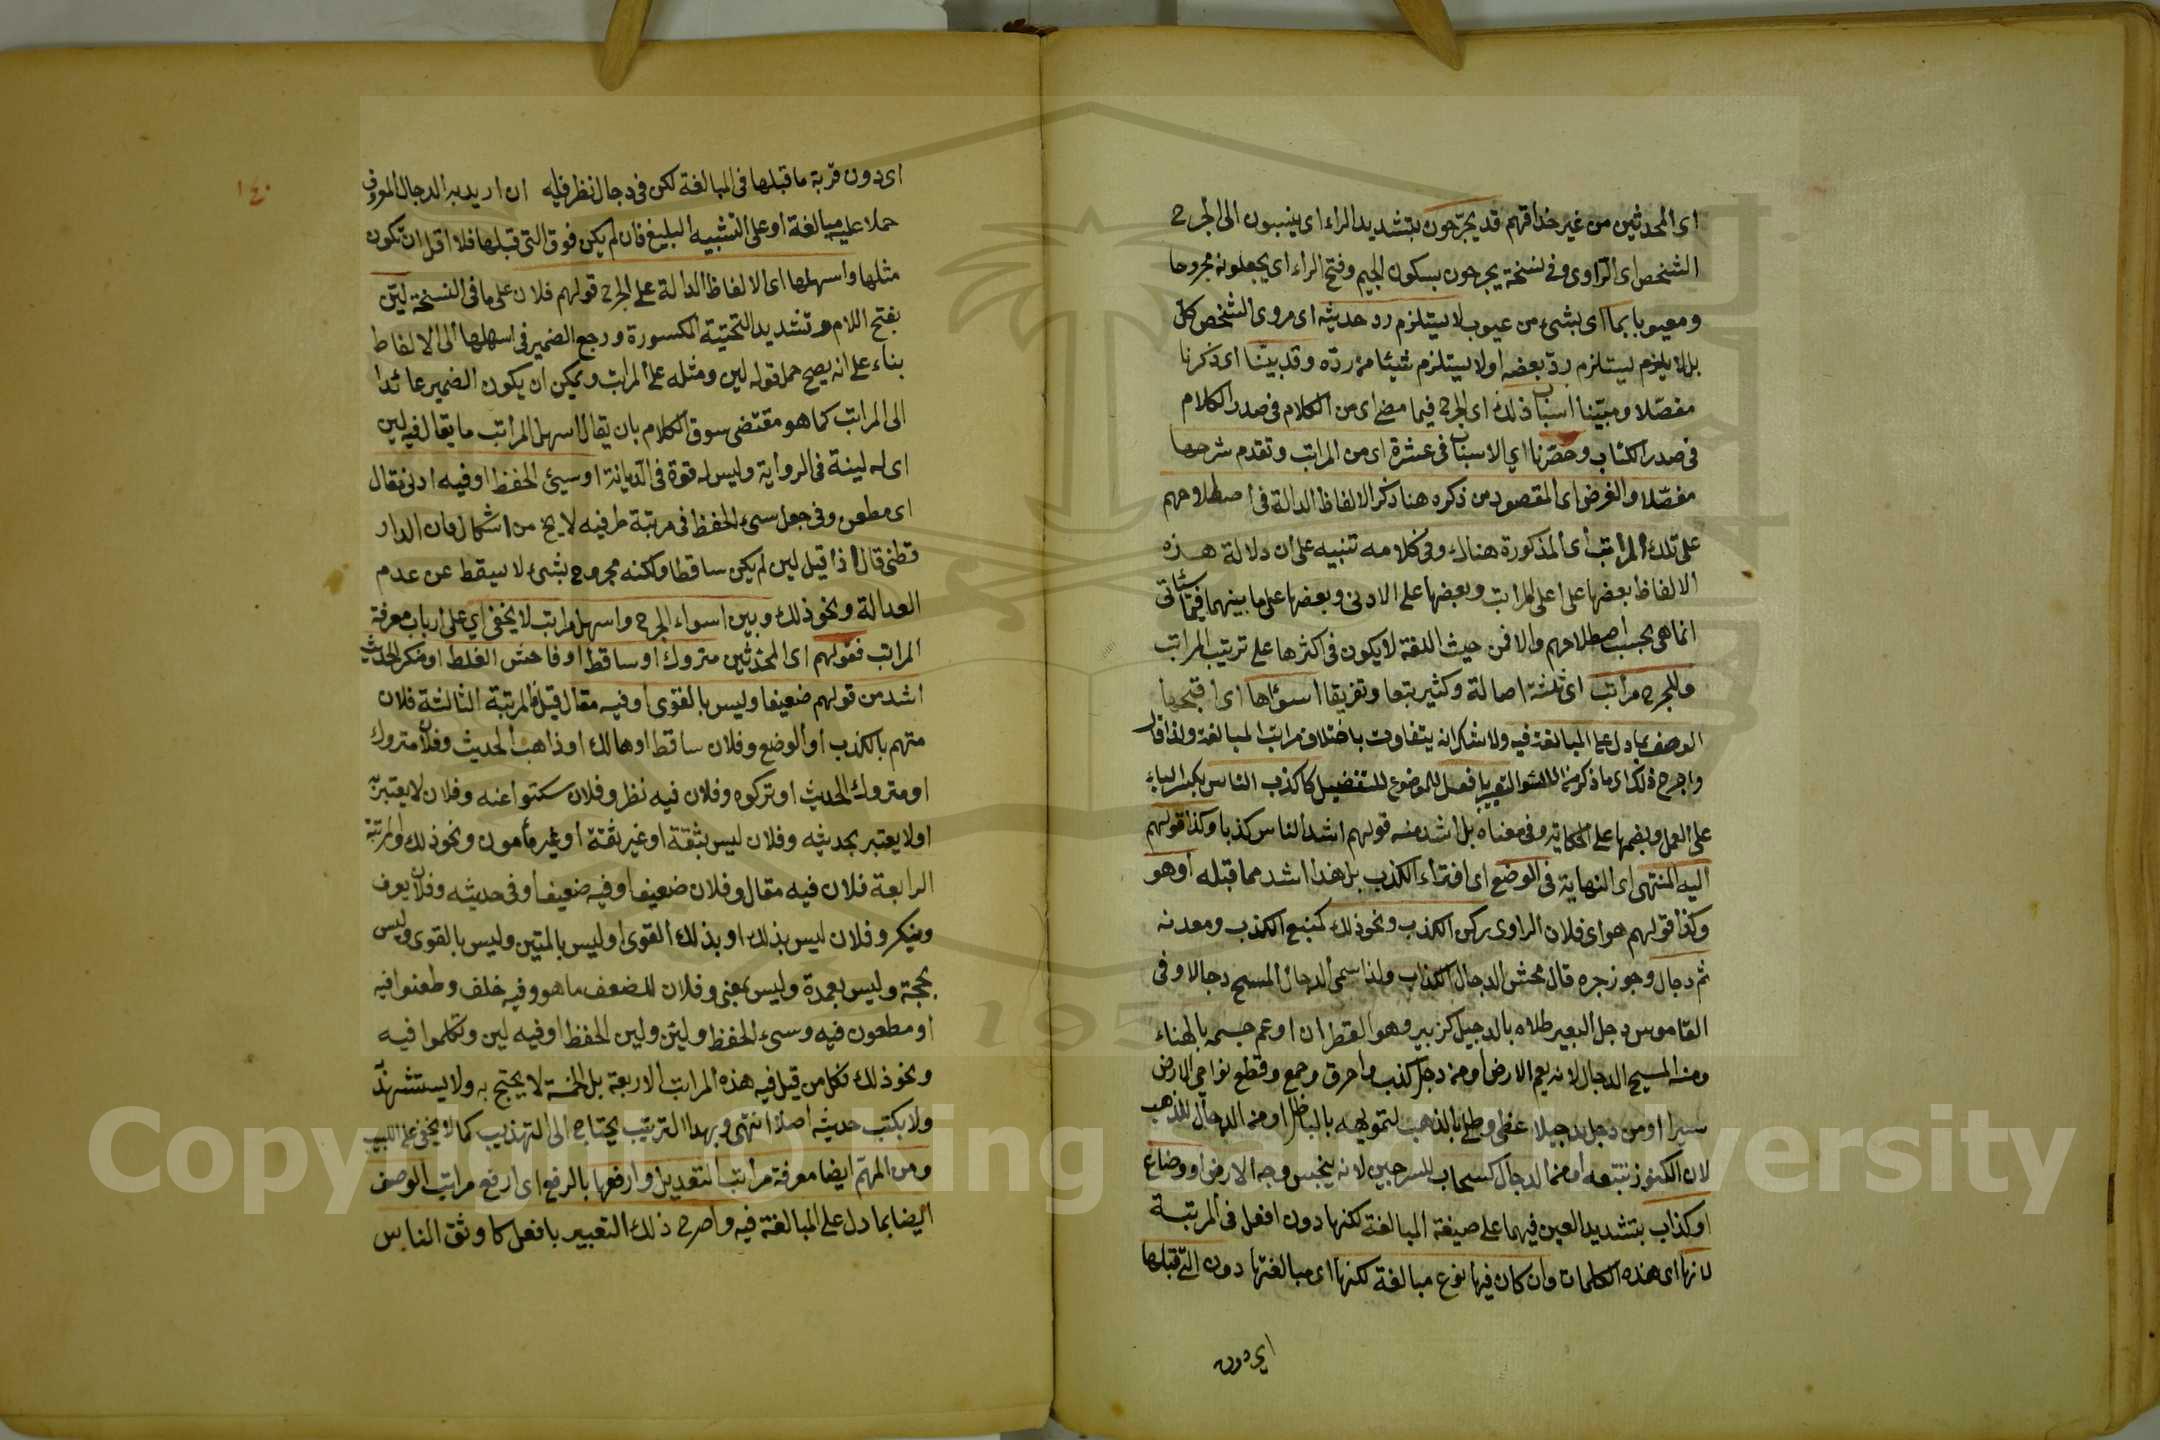 اى المحدثين من غير حذاقهم قد يجرّحون بتشديد الراء اى ينسبون الى الجرح
الشخص اى الراوى وفى نسخة يجرحون بسكون الجيم وفتح الراء اى يجعلونه مجروحا
ومعيوبا بما اى بشئ من عيوب لا يستلزم رد حديثه اى مروى الشخص كله
بل لا يلزم يستلزم ردّ بعضه او لا يستلزم شيئا من ردّه وقد بيّنّا اى ذكرنا
مفصّلا ومبيّنا اسباب ذلك اى الجرح فيما مضى اى من الكلام فى صدر الكلام
فى صدر الكتاب وحصرنا اي الاسباب فى عشرة اى من المراتب وتقدم شرحها
مفصّلا والغرض اى المقصود من ذكره هنا ذكر الالفاظ الدالة فى اصطلاحهم
على تلك المراتب اى المذكورة هناك وفى كلامه تنبيه على ان دلالة هذه
الالفاظ بعضها على اعلى المراتب وبعضها على الادنى وبعضها على ما بينهما فيما سيأتى
انما هى بحسب اصطلاحهم والا فمن حيث اللغة لا يكون فى اكثرها على ترتيب المراتب
وللجرح مراتب اى ثلثة اصالة وكثير تبعا وتفريقا اسوأها اى اقبحها
الوصف بما دل على المبالغة فيه ولا شك انه يتفاوت باختلاف مراتب المبالغة ولذا قال
واصرح ذلك اى ما ذكر من التعبير بافعل الموضوع للتفضيل كاكذب الناس بكسر الباء
على العمل وبضمها على الحكاية وفى معناه بل اشد منه قولهم اشد الناس كذبا وكذا قولهم
اليه المنتهى اى النهاية فى الوضع اى افتراء الكذب بل هذا اشد مما قبله او هو
وكذا قولهم هو اى فلان الراوى ركن الكذب ونحو ذلك كمنبع الكذب ومعدنه
ثم دجال وجوز جره قال محش الدجال الكذاب ولذا سمى الدجال المسيح دجالا وفى
القاموس دجل البعير طلاه بالدجيل كزبير وهو القطران او عم جسمه بالهناء
ومنه المسيح الدجال لانه يعم الارض او من دجل كذب واحرق وجمع وقطع نواحى الارض
سيرا او من دجل تدجيلا غطى وطلى بالذهب لتمويهه بالباطل او من الدجال للذهب
لان الكنوز تتبعه او من الدجال كسحاب للسرجين لانه ينجس وجه الارض او وضاع
او كذاب بتشديد العين فيهما على صيغة المبالغة لكنها دون افعل فى المرتبة
لانها اى هذه الكلمات وان كان فيها نوع مبالغة لكنها اى مبالغتها دون التى قبلها
اى دون
١٤٠
اى دون قربة ما قبلها فى المبالغة لكن فى دجال نظر فيه ان اريد به الدجال المعروف
حملا عليه مبالغة او على التشبيه البليغ فان لم يكن فوق التى قبلها فلا اقل ان تكون
مثلها واسهلها اى الالفاظ الدالة على الجرح قولهم فلان على ما فى النسخة ليّن
بفتح اللام وتشديد التحتية المكسورة ورجع الضمير فى اسهلها الى الالفاظ
بناء على انه يصح حمل قوله لين ومثله على المراتب ويمكن ان يكون الضمير عائدا
الى المراتب كما هو مقتضى سوق الكلام بان يقال اسهل المراتب ما يقال فيه لين
اى له لينة فى الرواية وليس له قوة فى الديانة او سيئ الحفظ او فيه ادنى مقال
اى مطعن وفى جعل سيء الحفظ فى مرتبة ما فيه لا يخ من اشكال فان الدار
قطنى قال اذا قيل لين لم يكن ساقطا ولكنه مجروح بشئ لا يسقط عن عدم
العدالة ونحو ذلك وبين اسواء الجرح واسهل مراتب لا يخفى اي على ارباب معرفة
المراتب فقولهم اى المحدثين متروك او ساقط او فاحش الغلط او منكر الحديث
اشد من قولهم ضعيف او ليس بالقوى او فيه مقال قيل المرتبة الثالثة فلان
متهم بالكذب او الوضع وفلان ساقط او هالك او ذاهب الحديث وفلان متروك
او متروك الحديث او تركوه وفلان فيه نظر وفلان سكتوا عنه وفلان لا يعتبر به
او لا يعتبر بحديثه وفلان ليس بثقة او غير ثقة او غير مأمون ونحو ذلك والمرتبة
الرابعة فلان فيه مقال وفلان ضعيف او فيه ضعيف او فى حديثه وفلان يعرف
وينكر وفلان ليس بذلك او بذلك القوى او ليس بالمتين وليس بالقوى وليس
بحجة وليس بعمدة وليس بمعنى وفلان للضعف ما هو وفيه خلف وطعنوا فيه
او مطعون فيه وسيء الحفظ ولين ولين الحفظ او فيه لين وتكلموا فيه
ونحو ذلك فكل من قيل فيه هذه المراتب الاربعة بل الخمسة لا يحتج به ولا يستشهد به
ولا يكتب حديثه اصلا انتهى وبهذا الترتيب يحتاج الى التهذيب كما لا يخفى على اللبيب
ومن المهمّ ايضا معرفة مراتب التعديل وارفعها بالرفع اى ارفع مراتب الوصف
ايضا بما دل على المبالغة فيه واصرح ذلك التعبير بافعل كاوثق الناس
Copyright © King Saud University
195